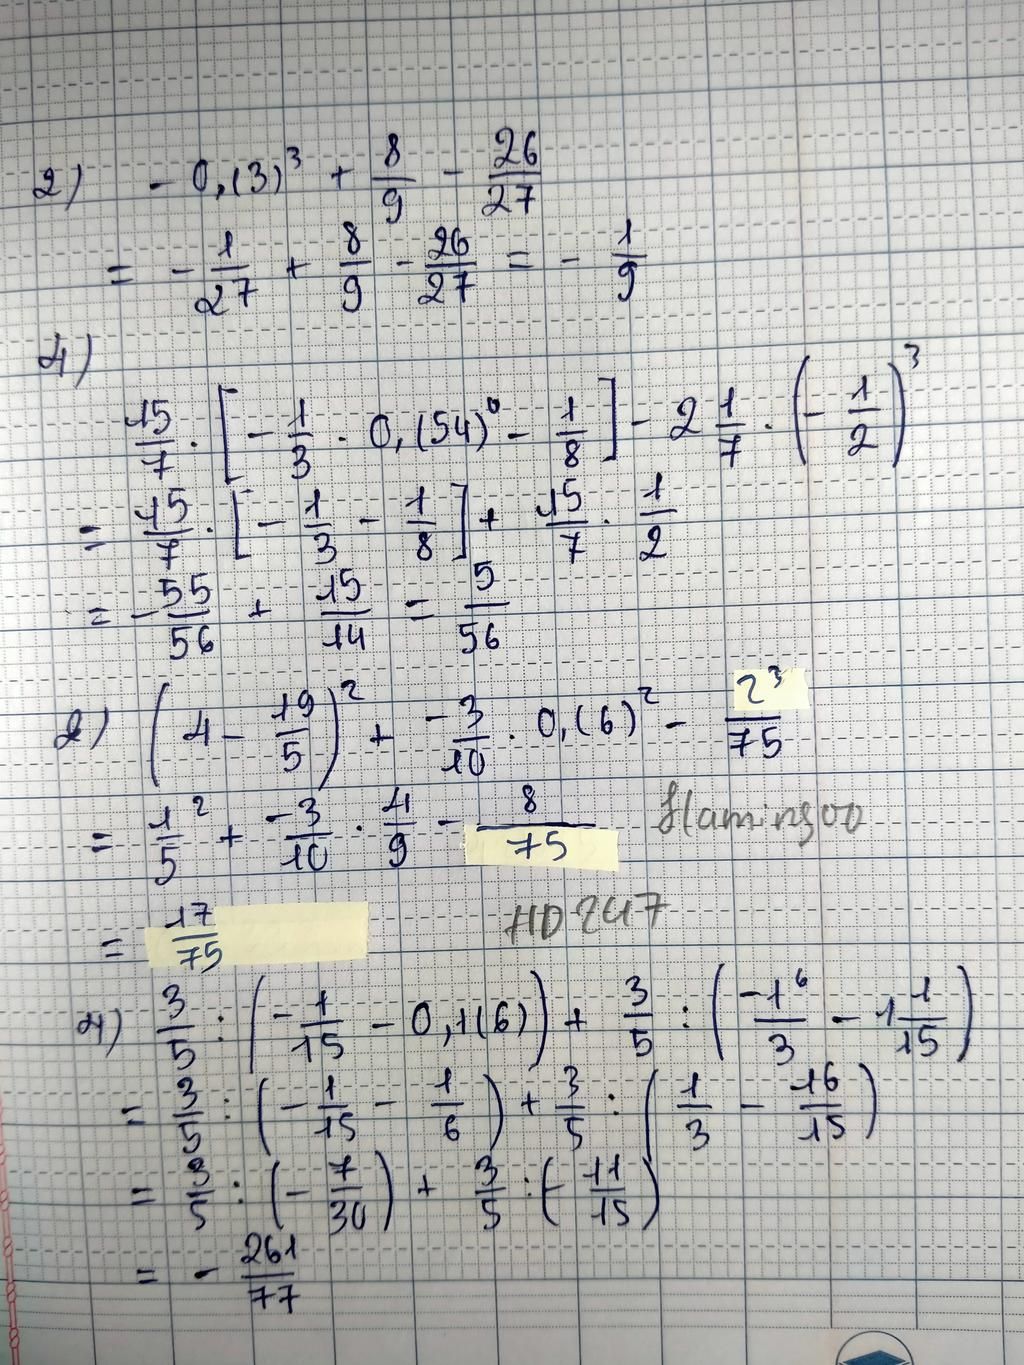 2) - 0,(3)³ + 8/9 - 26/27
= - 1/27 + 8/9 - 26/27 = - 1/9
4)
15/7 · [ - 1/3 · 0,(54)⁰ - 1/8 ] - 2 1/7 · ( - 1/2 )³
= 15/7 · [ - 1/3 - 1/8 ] + 15/7 · 1/2
= - 55/56 + 15/14 = 5/56
2) ( 4 - 19/5 )² + -3/10 · 0,(6)² - 2³/75
= 1/5 ² + -3/10 · 4/9 - 8/75
flamingoo
= 17/75
HD247
4) 3/5 : ( - 1/15 - 0,1(6) ) + 3/5 : ( -1⁶/3 - 1 1/15 )
= 3/5 : ( - 1/15 - 1/6 ) + 3/5 : ( 1/3 - 16/15 )
= 3/5 : ( - 7/30 ) + 3/5 : ( - 11/15 )
= - 261/77